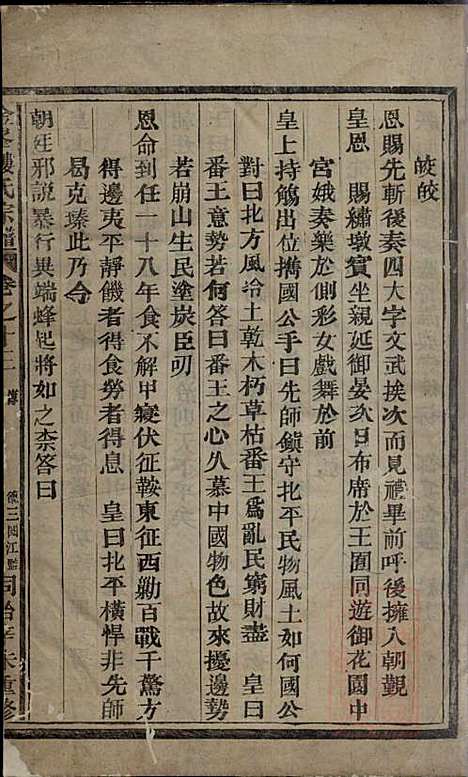 皎皎
恩賜先斬後奏四大字文武挨次而見禮畢前呼後擁入朝覲
皇恩　賜繡墩賓坐親延御晏次日布席於王囿同遊御花園中
宮娥奏樂於側彩女戲舞於前
皇上持觴出位擕國公手曰先師鎭守北平民物風土如何國公
對曰北方風冷土乾木朽草枯番王爲亂民窮財盡　皇曰
番王意勢若何答曰番王之心久慕中國物色故來擾邊勢
若崩山生民塗炭臣叨
恩命到任一十八年食不解甲寢伏征鞍東征西勦百戰千驚方
得邊夷平靜饑者得食勞者得息　皇曰北平橫悍非先師
曷克臻此乃令
朝廷邪說暴行異端蜂起將如之柰答曰
氏宗譜 卷之十二 傳 德三 同治辛未重修